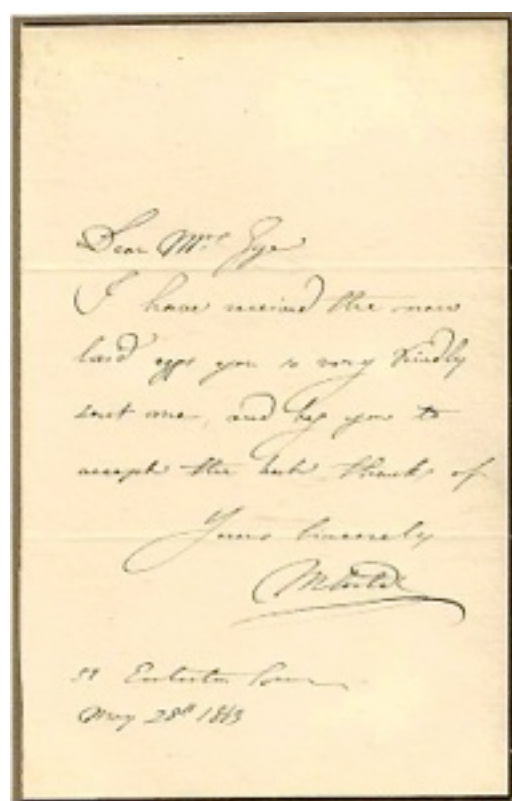 Dear Mrs. Gye
I have received the new
laid eggs you so very kindly
sent me, and beg you to
accept the best thanks of
Yours Sincerely
May 28th 1863